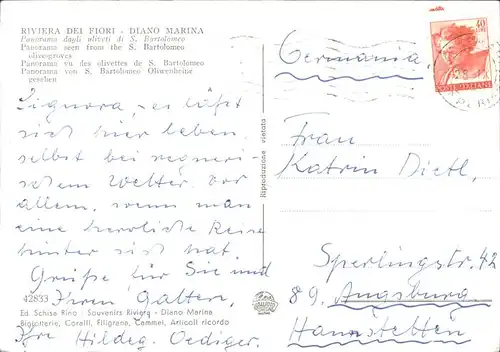 RIVIERA DEI FIORI - DIANO MARINA
Panorama dagli uliveti di S. Bartolomeo
Panorama seen from the S. Bartolomeo
olivesgroves
Panorama vu des olivettes de S. Bartolomeo
Panorama von S. Bartolomeo Olivenheine
gesehen
Signora, es läßt
sich hier leben
selbst bei regneri-
schem Wetter. Vor
allem, wenn man
eine herrliche Reise
hinter sich hat.
Grüße für Sie und
Ihren Gatten,
Ihre Hildeg. Oediger.
42833
Ed. Schiso Rino - Souvenirs Riviera - Diano Marina
Bigiotterie, Coralli, Filigrana, Cammei, Articoli ricordo
Riproduzione vietata
40
LIRE
POSTE ITALIANE
Germania.
Frau
Katrin Dietl,
Sperlingstr. 42
89. Augsburg
Haunstetten